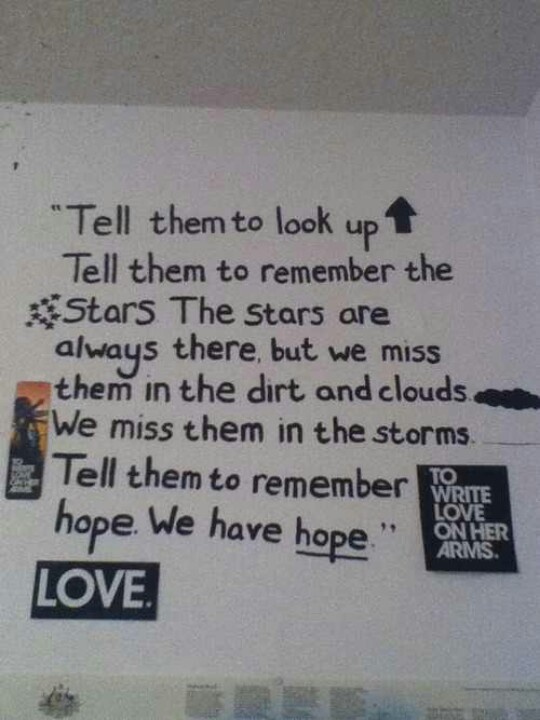 "Tell them to look up
Tell them to remember the
Stars The stars are
always there, but we miss
them in the dirt and clouds.
We miss them in the storms.
Tell them to remember
hope. We have hope."
TO
WRITE
LOVE
ON HER
ARMS.
TO
WRITE
LOVE
ON HER
ARMS.
LOVE.